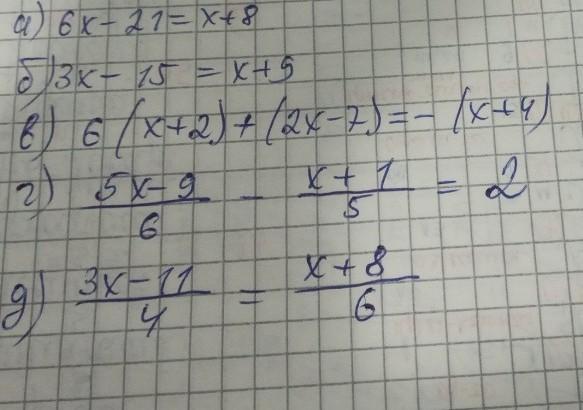 а) 6x - 21 = x+8
б) 3x - 15 = x+9
в) 6 (x+2) + (2x-7) = - (x+4)
г) (5x-9)/6 - (x+1)/5 = 2
д) (3x-11)/4 = (x+8)/6